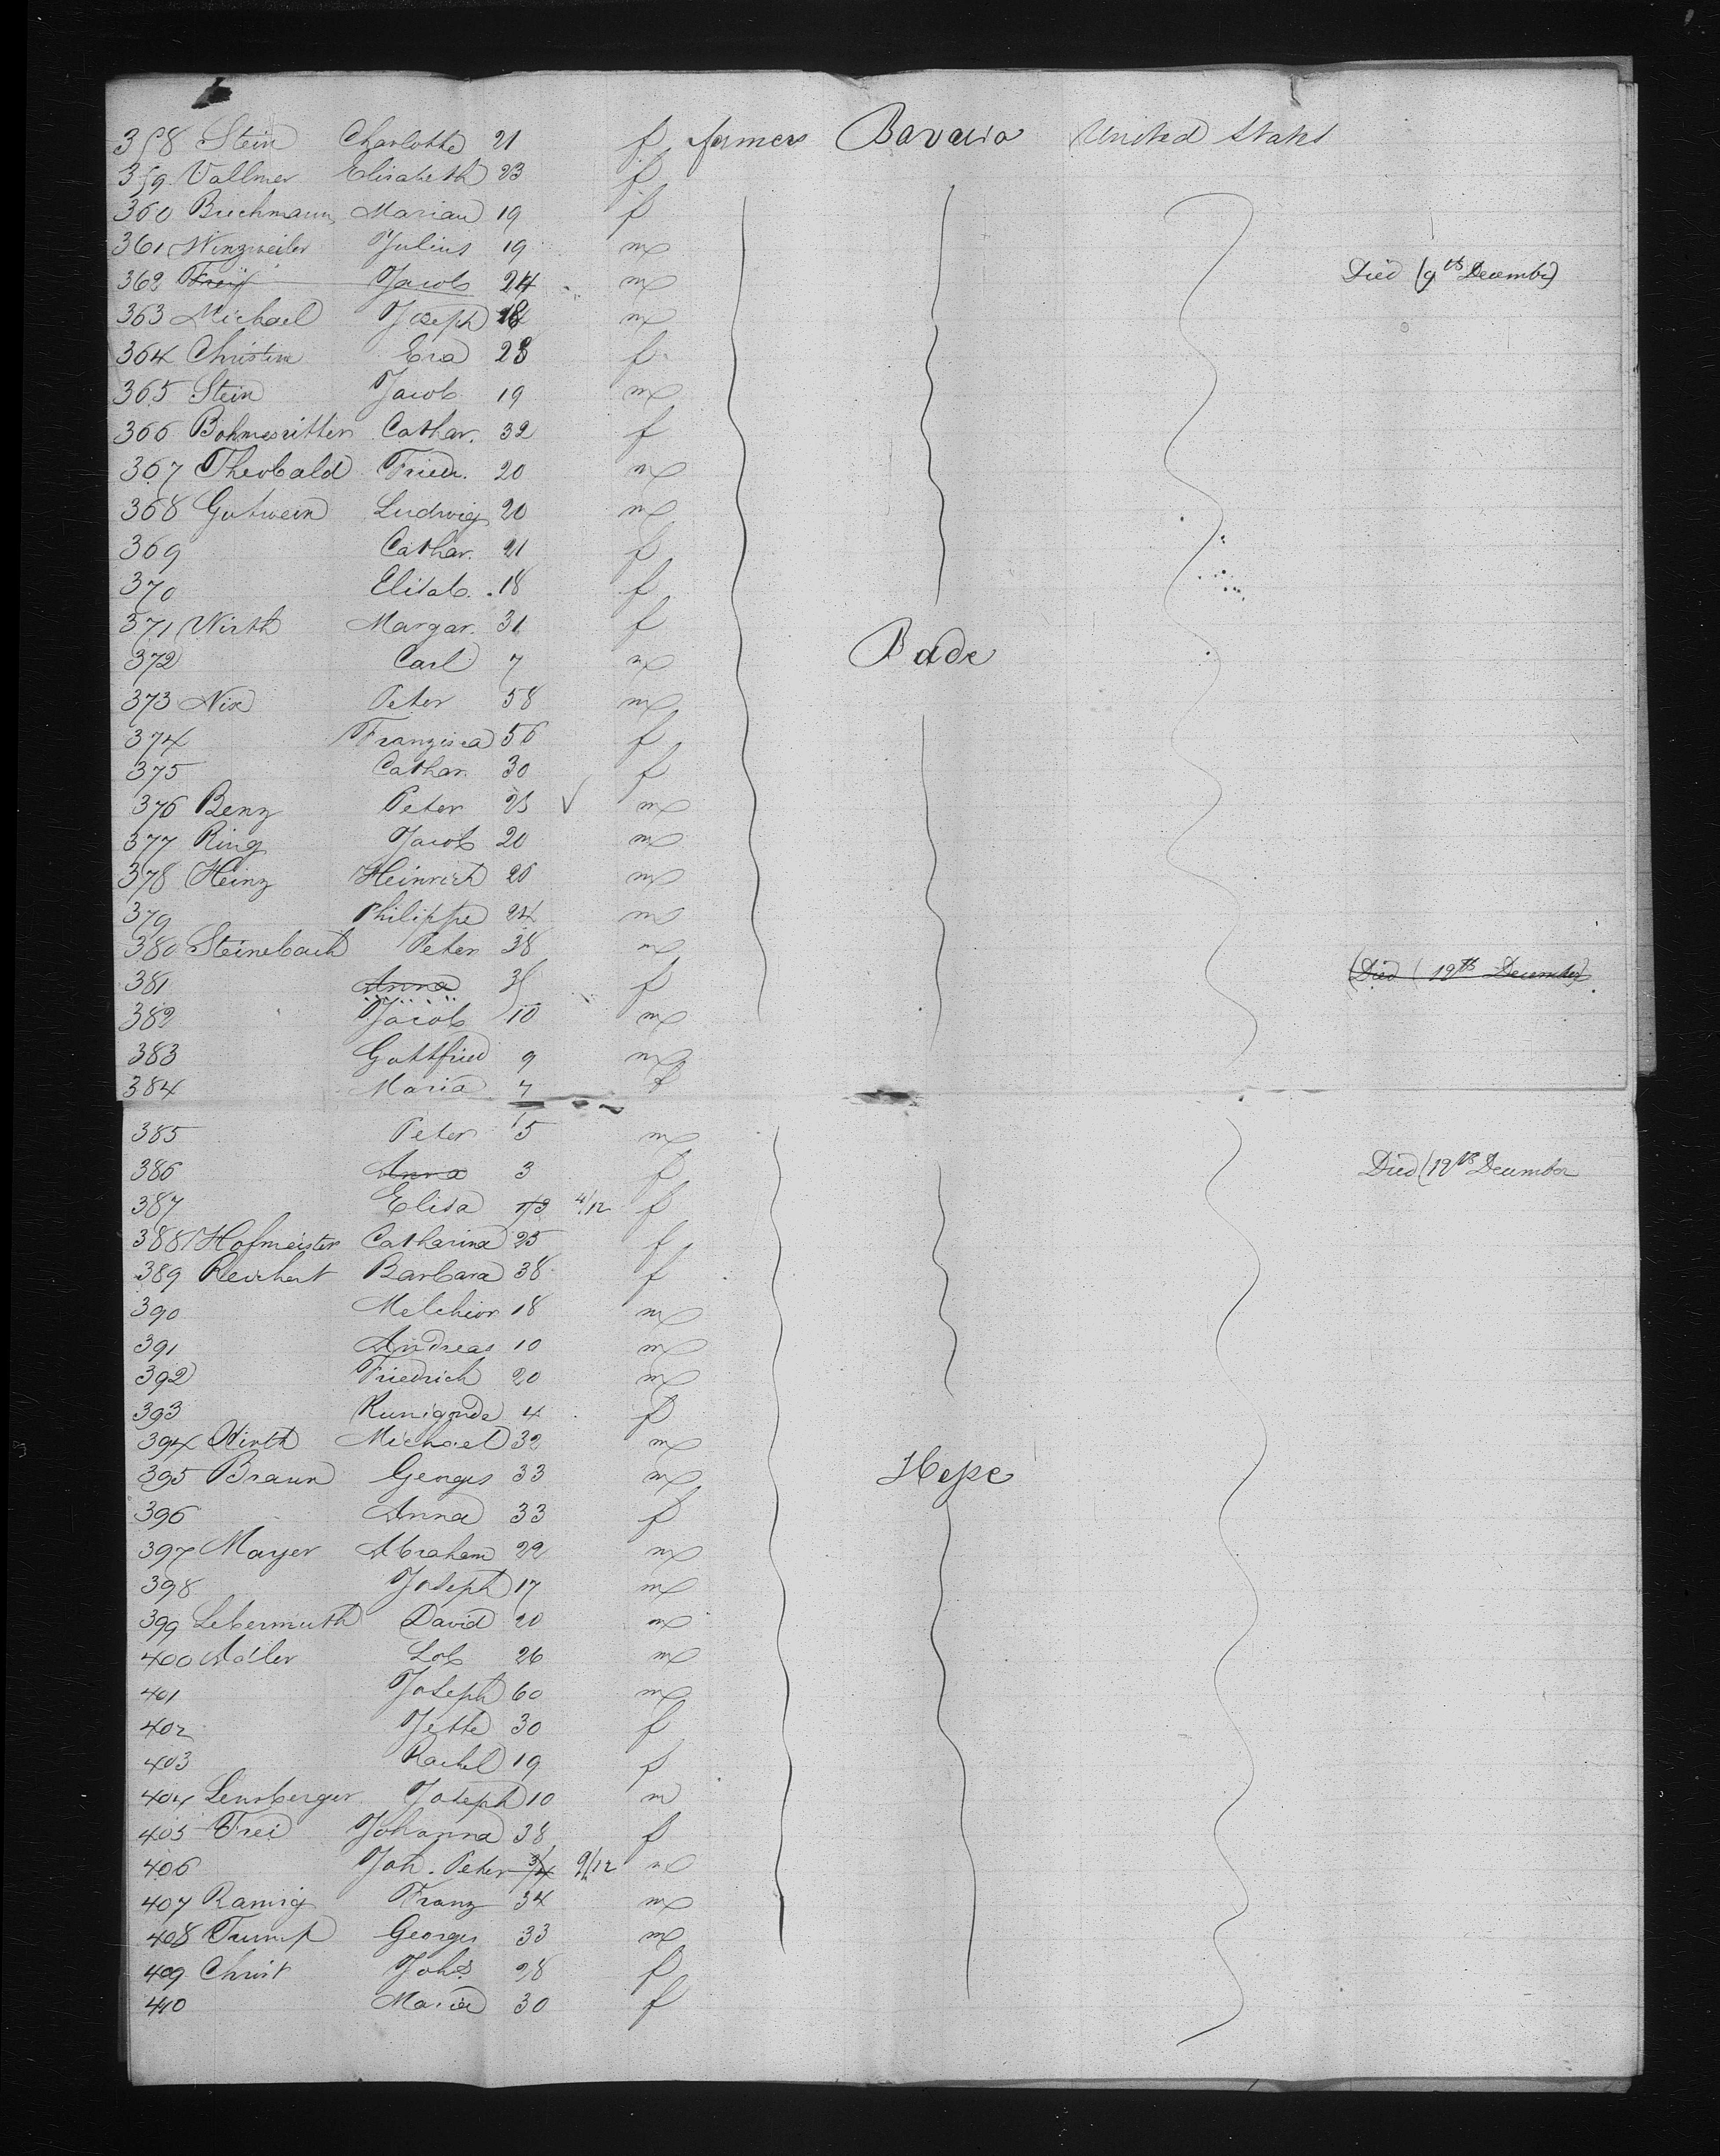 358 Stein Charlotte 21 f farmers Bavaria United States
359 Vollmer Elisabeth 23 f
360 Buchmann Marian 19 f
361 Winzweiler Julius 19 m
362 Jacob 24 m Died (9th December)
363 Michael Joseph 18 m
364 Christine Eva 28 f
365 Stein Jacob 19 m
366 Bohmesritter Cathar. 32 f
367 Theobald Friedr. 20 m
368 Gutwein Ludwig 20 m
369 Cathar. 21 f
370 Elisab. 18 f
371 Wirth Margar. 31 f
372 Carl 7 m Bade
373 Nix Peter 58 m
374 Franzisca 56 f
375 Cathar. 30 f
376 Benz Peter 25 ✓ m
377 Ring Jacob 20 m
378 Heinz Heinrich 26 m
379 Philippe 24 m
380 Steinebach Peter 38 m
381 Anna 35 f (Died (12th December)
382 Jacob 10 m
383 Gottfried 9 m
384 Maria 7 f
385 Peter 5 m
386 Anna 3 f Died (12th December
387 Elisa 1/3 4/12 f
388 Hofmeister Catharina 25 f
389 Reichert Barbara 38 f
390 Melchior 18 m
391 Andreas 10 m
392 Friedrich 20 m
393 Kunigonde 4 f
394 Wirth Michael 32 m
395 Braun Georges 33 m Heße
396 Anna 33 f
397 Mayer Abraham 22 m
398 Joseph 17 m
399 Lebermuth David 20 m
400 Adler Lob 26 m
401 Joseph 60 m
402 Jette 30 f
403 Rachel 19 f
404 Joseph 10 m
405 Frei Johanna 38 f
406 Joh. Peter 3/4 9/12 m
407 Ramig Franz 34 m
408 Trumpf Georges 33 m
409 Christ Johs 28 f
410 Maria 30 f